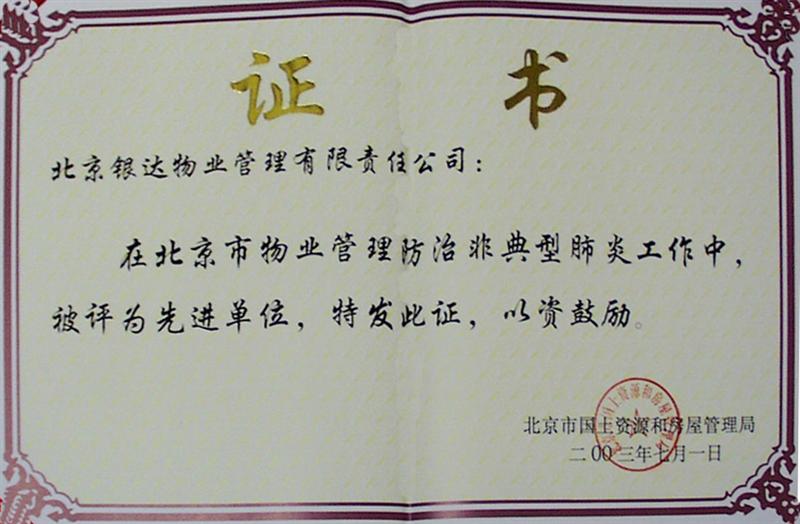 证 书
北京银达物业管理有限责任公司：
在北京市物业管理防治非典型肺炎工作中，
被评为先进单位，特发此证，以资鼓励。
北京市国土资源和房屋管理局
二00三年七月一日